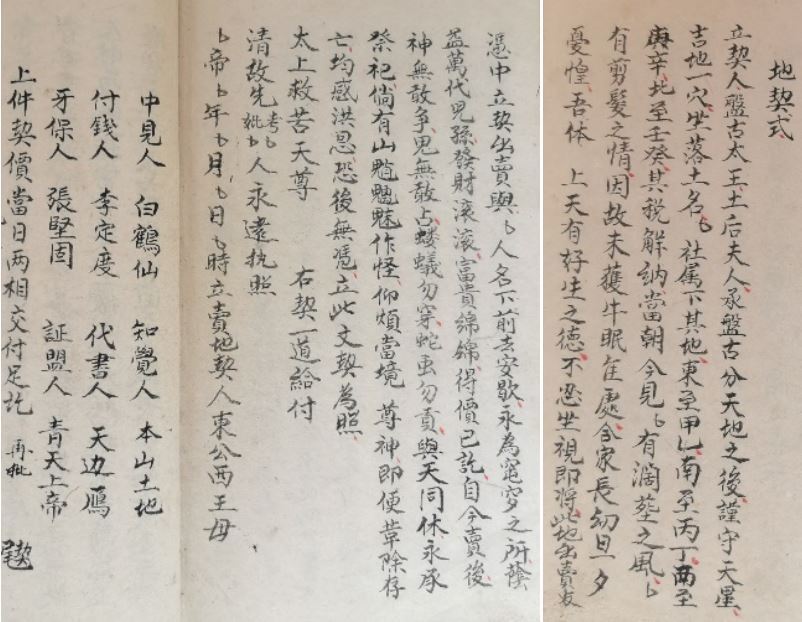 地契式
立契人盤古太王土后夫人承盤古分天地之後謹守天星
吉地一穴坐落土名〻社属下其地東至甲乙南至丙丁西至
庚辛北至壬癸其税解納當朝今見〻有濶塟之風〻
有剪髮之情因故未獲牛眠隹處合家長幼旦夕
憂惶吾体 上天有好生之德不忍坐視即將此地出賣友
憑中立契出賣與〻人名下前去安歇永為窀穸之所蔭
益萬代児孫發財滚滚富貴綿綿得價已訖自今賣後
神無敢争鬼無敢占蝼蟻勿穿蛇虫勿貢與天同休永承
祭祀倘有山魈魍魅作怪仰煩當境 尊神即便革除存
亡均感洪恩恐後無凴立此文契為照
太上救苦天尊 右契一道給付
清故先考妣〻〻人永遠执照
〻帝〻年〻月〻日〻時立賣地契人東公西王母
中見人 白鶴仙 知覺人 本山土地
付錢人 李定度 代書人 天边雁
牙保人 張堅固 証盟人 青天上帝
上件契價當日两相交付足訖 再批